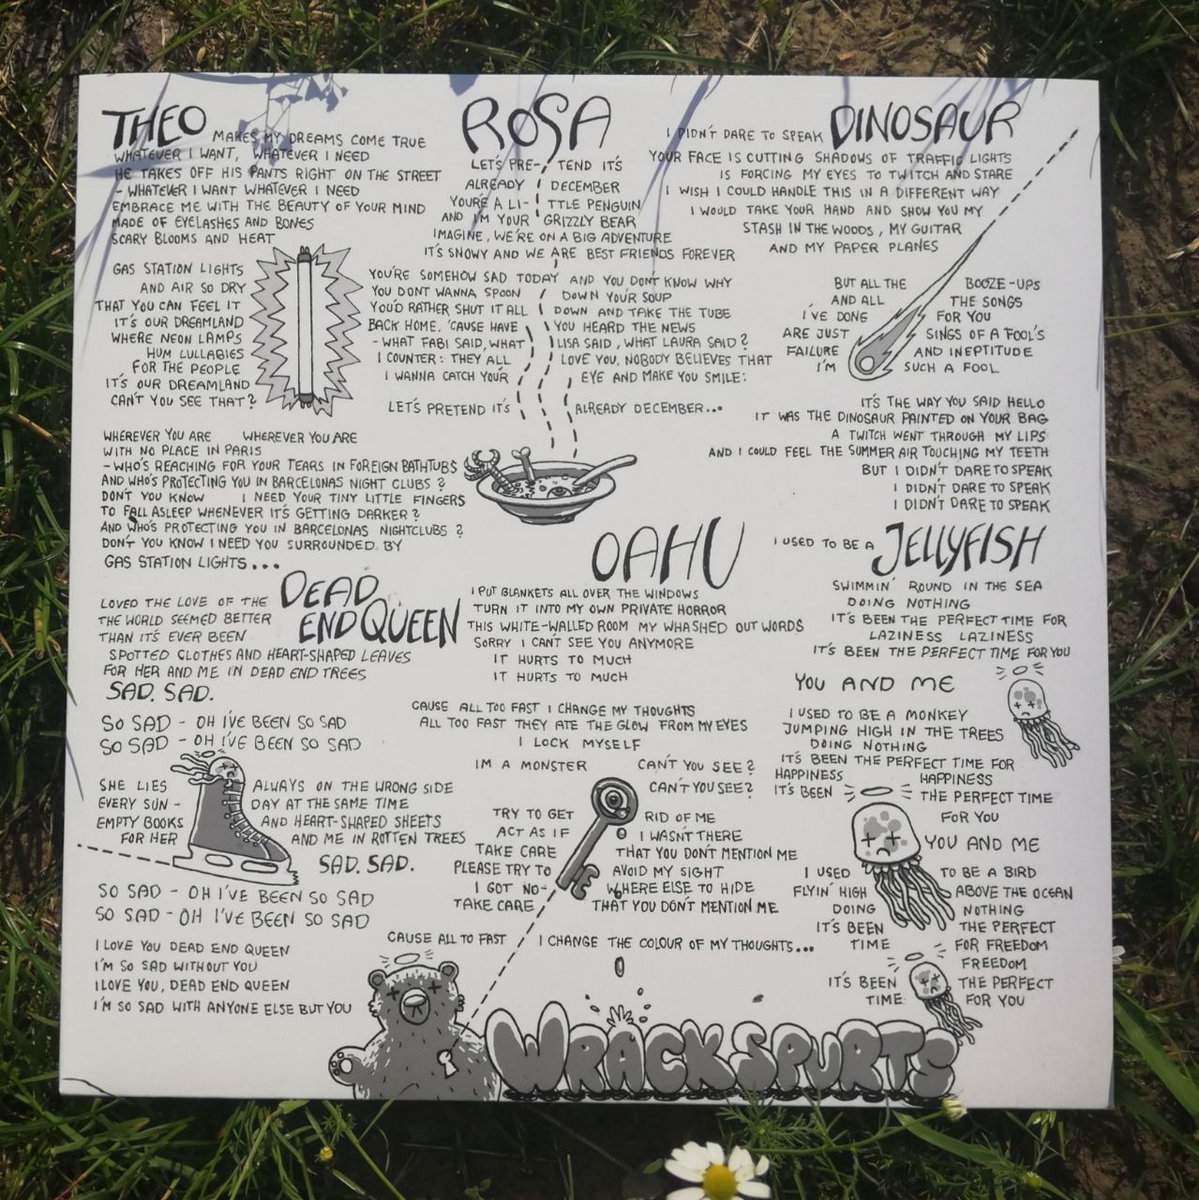 THEO MAKES MY DREAMS COME TRUE
WHATEVER I WANT, WHATEVER I NEED
HE TAKES OFF HIS PANTS RIGHT ON THE STREET
- WHATEVER I WANT WHATEVER I NEED
EMBRACE ME WITH THE BEAUTY OF YOUR MIND
MADE OF EYELASHES AND BONES
SCARY BLOOMS AND HEAT
GAS STATION LIGHTS
AND AIR SO DRY
THAT YOU CAN FEEL IT
IT'S OUR DREAMLAND
WHERE NEON LAMPS
HUM LULLABIES
FOR THE PEOPLE
IT'S OUR DREAMLAND
CAN'T YOU SEE THAT?
WHEREVER YOU ARE WHEREVER YOU ARE
WITH NO PLACE IN PARIS
- WHO'S REACHING FOR YOUR TEARS IN FOREIGN BATHTUBS
AND WHO'S PROTECTING YOU IN BARCELONAS NIGHT CLUBS?
DON'T YOU KNOW I NEED YOUR TINY LITTLE FINGERS
TO FALL ASLEEP WHENEVER IT'S GETTING DARKER?
AND WHO'S PROTECTING YOU IN BARCELONAS NIGHTCLUBS?
DON'T YOU KNOW I NEED YOU SURROUNDED BY
GAS STATION LIGHTS...
ROSA
LET'S PRE- TEND IT'S
ALREADY DECEMBER
YOU'RE A LI- TTLE PENGUIN
AND I'M YOUR GRIZZLY BEAR
IMAGINE, WE'RE ON A BIG ADVENTURE
IT'S SNOWY AND WE ARE BEST FRIENDS FOREVER
YOU'RE SOMEHOW SAD TODAY AND YOU DON'T KNOW WHY
YOU DONT WANNA SPOON DOWN YOUR SOUP
YOU'D RATHER SHUT IT ALL DOWN AND TAKE THE TUBE
BACK HOME. 'CAUSE HAVE YOU HEARD THE NEWS
- WHAT FABI SAID, WHAT LISA SAID, WHAT LAURA SAID?
I COUNTER: THEY ALL LOVE YOU, NOBODY BELIEVES THAT
I WANNA CATCH YOUR EYE AND MAKE YOU SMILE:
LET'S PRETEND IT'S ALREADY DECEMBER...
I DIDN'T DARE TO SPEAK DINOSAUR
YOUR FACE IS CUTTING SHADOWS OF TRAFFIC LIGHTS
IS FORCING MY EYES TO TWITCH AND STARE
I WISH I COULD HANDLE THIS IN A DIFFERENT WAY
I WOULD TAKE YOUR HAND AND SHOW YOU MY
STASH IN THE WOODS, MY GUITAR
AND MY PAPER PLANES
BUT ALL THE BOOZE-UPS
AND ALL THE SONGS
I'VE DONE FOR YOU
ARE JUST SINGS OF A FOOL'S
FAILURE AND INEPTITUDE
I'M SUCH A FOOL
IT'S THE WAY YOU SAID HELLO
IT WAS THE DINOSAUR PAINTED ON YOUR BAG
A TWITCH WENT THROUGH MY LIPS
AND I COULD FEEL THE SUMMER AIR TOUCHING MY TEETH
BUT I DIDN'T DARE TO SPEAK
I DIDN'T DARE TO SPEAK
I DIDN'T DARE TO SPEAK
DEAD END QUEEN
LOVED THE LOVE OF THE
THE WORLD SEEMED BETTER
THAN IT'S EVER BEEN
SPOTTED CLOTHES AND HEART-SHAPED LEAVES
FOR HER AND ME IN DEAD END TREES
SAD. SAD.
SO SAD - OH I'VE BEEN SO SAD
SO SAD - OH I'VE BEEN SO SAD
SHE LIES ALWAYS ON THE WRONG SIDE
EVERY SUN- DAY AT THE SAME TIME
EMPTY BOOKS AND HEART-SHAPED SHEETS
FOR HER AND ME IN ROTTEN TREES
SAD. SAD.
SO SAD - OH I'VE BEEN SO SAD
SO SAD - OH I'VE BEEN SO SAD
I LOVE YOU DEAD END QUEEN
I'M SO SAD WITHOUT YOU
I LOVE YOU, DEAD END QUEEN
I'M SO SAD WITH ANYONE ELSE BUT YOU
OAHU
I PUT BLANKETS ALL OVER THE WINDOWS
TURN IT INTO MY OWN PRIVATE HORROR
THIS WHITE-WALLED ROOM MY WHASHED OUT WORDS
SORRY I CAN'T SEE YOU ANYMORE
IT HURTS TO MUCH
IT HURTS TO MUCH
CAUSE ALL TOO FAST I CHANGE MY THOUGHTS
ALL TOO FAST THEY ATE THE GLOW FROM MY EYES
I LOCK MYSELF
IM A MONSTER CAN'T YOU SEE?
CAN'T YOU SEE?
TRY TO GET RID OF ME
ACT AS IF I WASN'T THERE
TAKE CARE THAT YOU DON'T MENTION ME
PLEASE TRY TO AVOID MY SIGHT
I GOT NO- WHERE ELSE TO HIDE
TAKE CARE THAT YOU DON'T MENTION ME
CAUSE ALL TO FAST I CHANGE THE COLOUR OF MY THOUGHTS...
I USED TO BE A JELLYFISH
SWIMMIN' ROUND IN THE SEA
DOING NOTHING
IT'S BEEN THE PERFECT TIME FOR
LAZINESS LAZINESS
IT'S BEEN THE PERFECT TIME FOR YOU
YOU AND ME
I USED TO BE A MONKEY
JUMPING HIGH IN THE TREES
DOING NOTHING
IT'S BEEN THE PERFECT TIME FOR
HAPPINESS HAPPINESS
IT'S BEEN THE PERFECT TIME
FOR YOU
YOU AND ME
I USED TO BE A BIRD
FLYIN' HIGH ABOVE THE OCEAN
DOING NOTHING
IT'S BEEN THE PERFECT
TIME FOR FREEDOM
FREEDOM
IT'S BEEN THE PERFECT
TIME FOR YOU
WRACKSPURTS